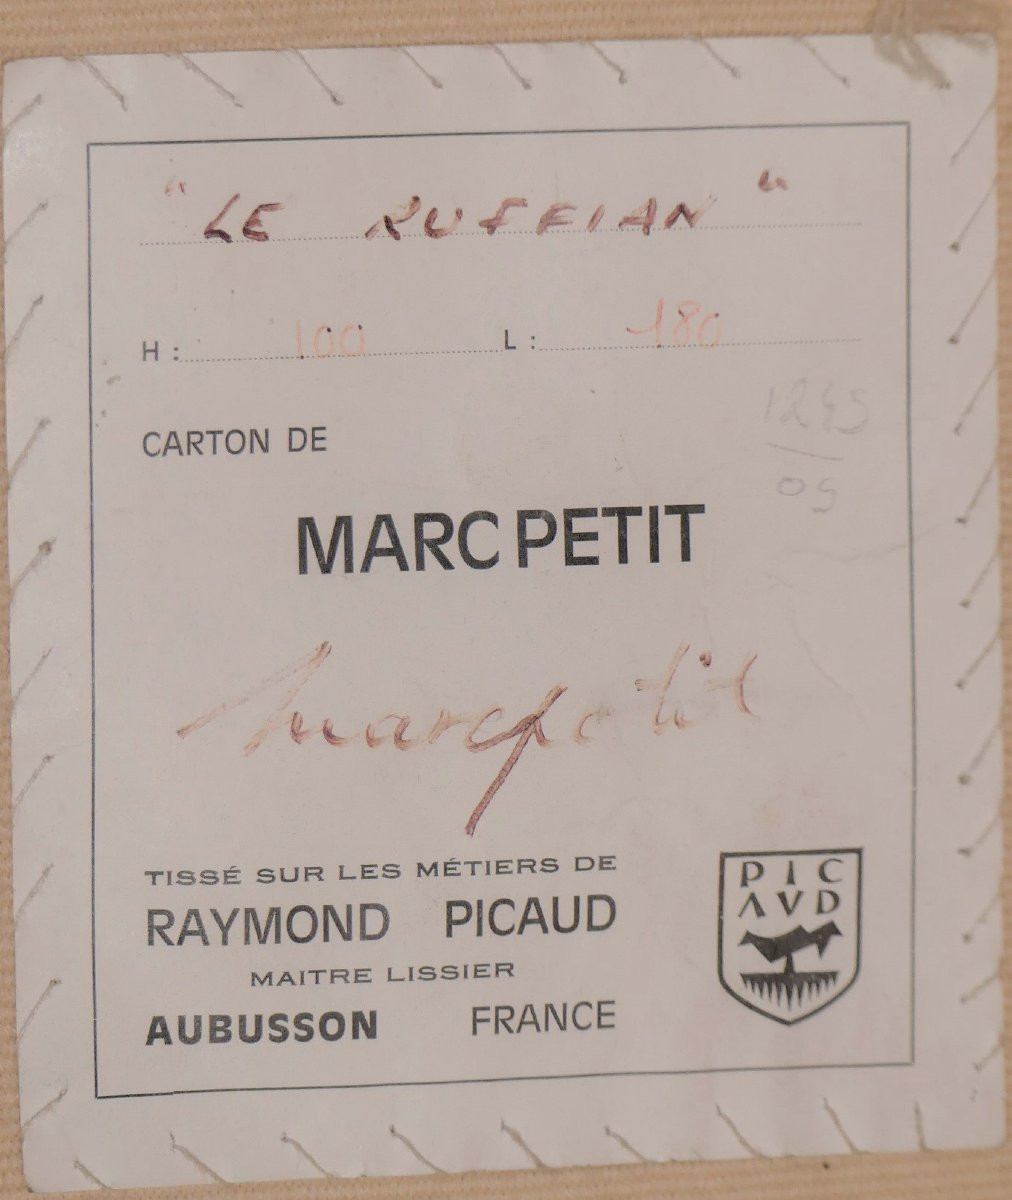 "LE RUFFIAN"
H : 100 L : 180
CARTON DE
1245
05
MARC PETIT
marcpetit
TISSÉ SUR LES MÉTIERS DE
RAYMOND PICAUD
MAITRE LISSIER
AUBUSSON FRANCE
PIC
AVD